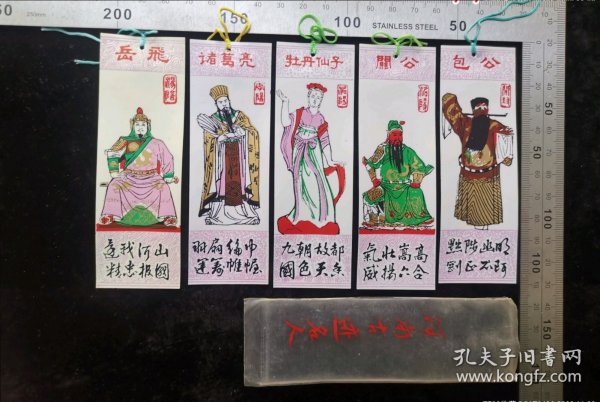 200 150 100 50
STAINLESS STEEL
岳飛
還我河山
精忠报國
诸葛亮
羽扇綸巾
運籌帷幄
牡丹仙子
九朝故都
國色天香
關公
氣壯嵩高
威揚六合
包公
黜陟幽明
剛正不阿
50
100
150
孔夫子旧书网
www.kongfz.com